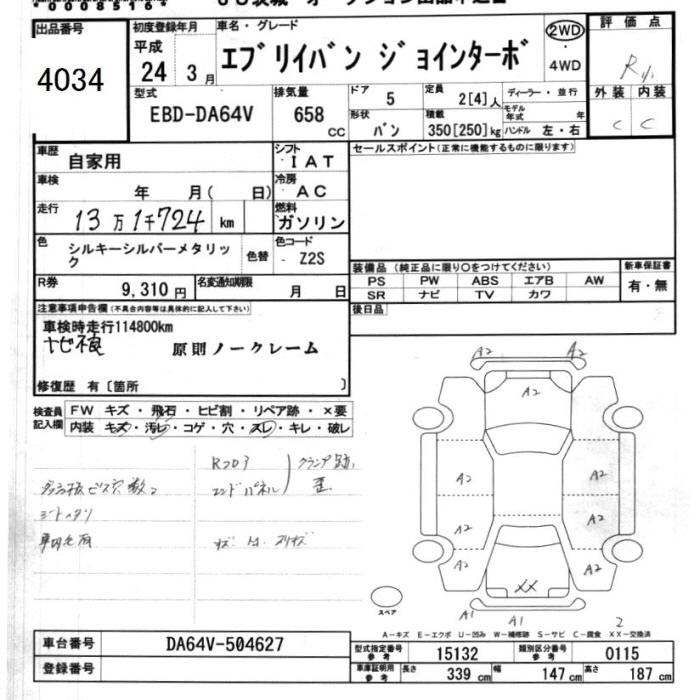 出品番号
4034
初度登録年月
平成
24 3月
車名・グレード
エブリイバン ジョインターボ
2WD
・
4WD
評価点
R
外装 内装
C C
型式
EBD-DA64V
排気量
658 CC
ドア 5
形状 バン
定員 2[4]人
積載 350[250]kg
ディーラー・並行
モデル年式 年
ハンドル 左・右
車歴 自家用
シフト IAT
セールスポイント(正常に機能するものに限ります)
車検 年 月( 日)
冷房 AC
走行 13万1千724 km
燃料 ガソリン
色 シルキーシルバーメタリック
色替
色コード Z2S
装備品(純正品に限り○をつけてください)
PS PW ABS エアB AW
SR ナビ TV カワ
新車保証書
有・無
R券 9,310円
名変通知期限 月 日
後日品
注意事項申告欄(不具合内容等は具体的に記入して下さい)
車検時走行114800km
ナビ不良 原則ノークレーム
修復歴 有〔箇所 〕
検査員記入欄
FW キズ・飛石・ヒビ割・リペア跡・×要
内装 キズ・汚レ・コゲ・穴・スレ・キレ・破レ
Rフロア
エンドパネル
クランプ跡、
歪
ダッシュ板ビス穴数コ
A2 A2
A2
A2 A2
A2 A2
A2 A2
XX
A1 A1 2
スペア
A-キズ E-エクボ U-凹み W-補修跡 S-サビ C-腐食 XX-交換済
車台番号 DA64V-504627
登録番号
型式指定番号 参考 15132
類別区分番号 参考 0115
車庫証明用 参考 長さ 339cm 幅 147cm 高さ 187cm